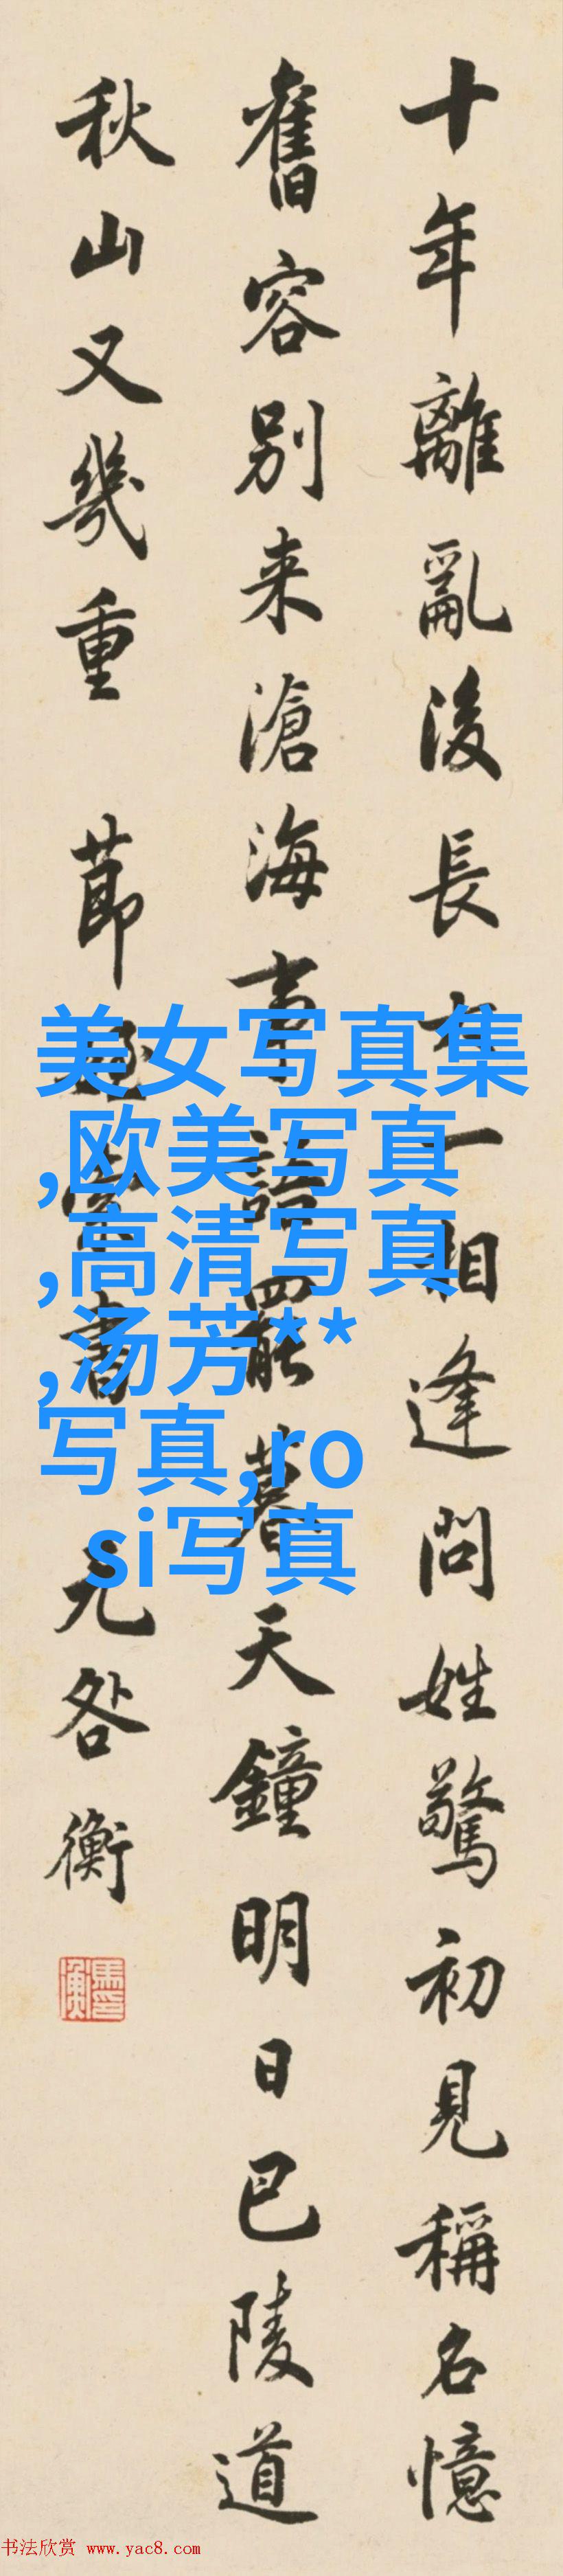 十年離亂後長大一相逢問姓驚初見稱名憶
舊容別来滄海事語罷暮天鐘明日巴陵道
秋山又幾重 節書咎衡
馬衡印
美女写真集
,欧美写真
,高清写真
,汤芳**
写真,ro
si写真
书法欣赏 www.yac8.com